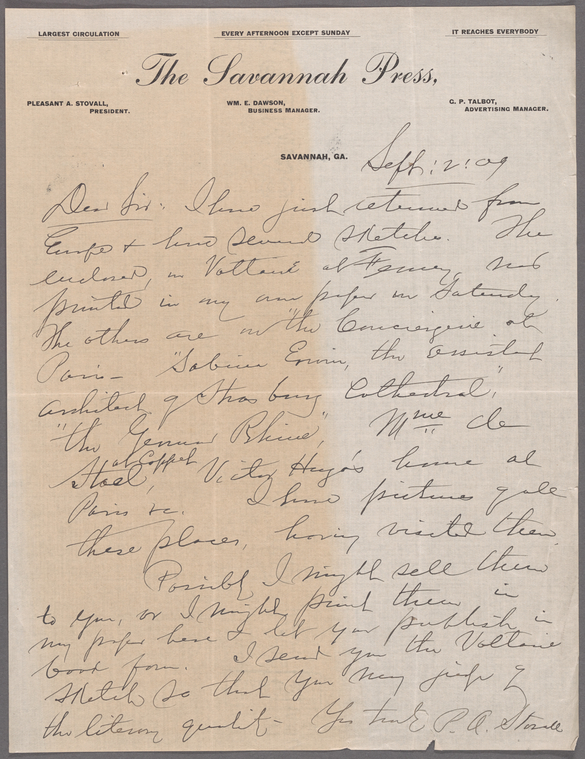 LARGEST CIRCULATION EVERY AFTERNOON EXCEPT SUNDAY IT REACHES EVERYBODY
The Savannah Press,
PLEASANT A. STOVALL, WM. E. DAWSON, G. P. TALBOT,
PRESIDENT. BUSINESS MANAGER. ADVERTISING MANAGER.
SAVANNAH, GA. Sept. 2. 09
Dear Sir: I have just returned from
Europe & have several sketches. The
enclosed, on Voltaire at Ferney, was
printed in my own paper on Saturday.
The others are on "the Conciergerie at
Paris— "Sabina Erwin, the assistant
architect of Strasburg Cathedral,"
"the German Rhine", Mme de
Stael, at Coppet Victor Hugo's home at
Paris &c. I have pictures of all
these places, having visited them.
Possibly I might sell them
to you, or I might print them in
my paper here & let you publish in
book form. I send you the Voltaire
sketch so that you may judge of
the literary quality— Yrs truly P. A. Stovall